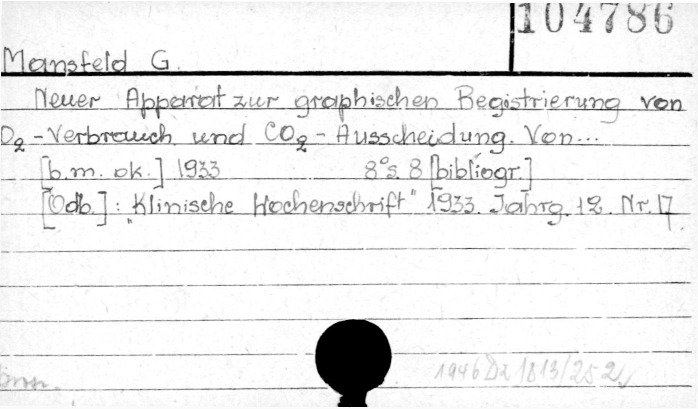 104786
Mansfeld G.
Neuer Apparat zur graphischen Registrierung von
O₂-Verbrauch und CO₂-Ausscheidung. Von...
[b.m. ok.] 1933 8° s. 8 [bibliogr.]
[Odb.]: "Klinische Wochenschrift" 1933. Jahrg. 12. Nr. 17.
1946 D2 1813/252